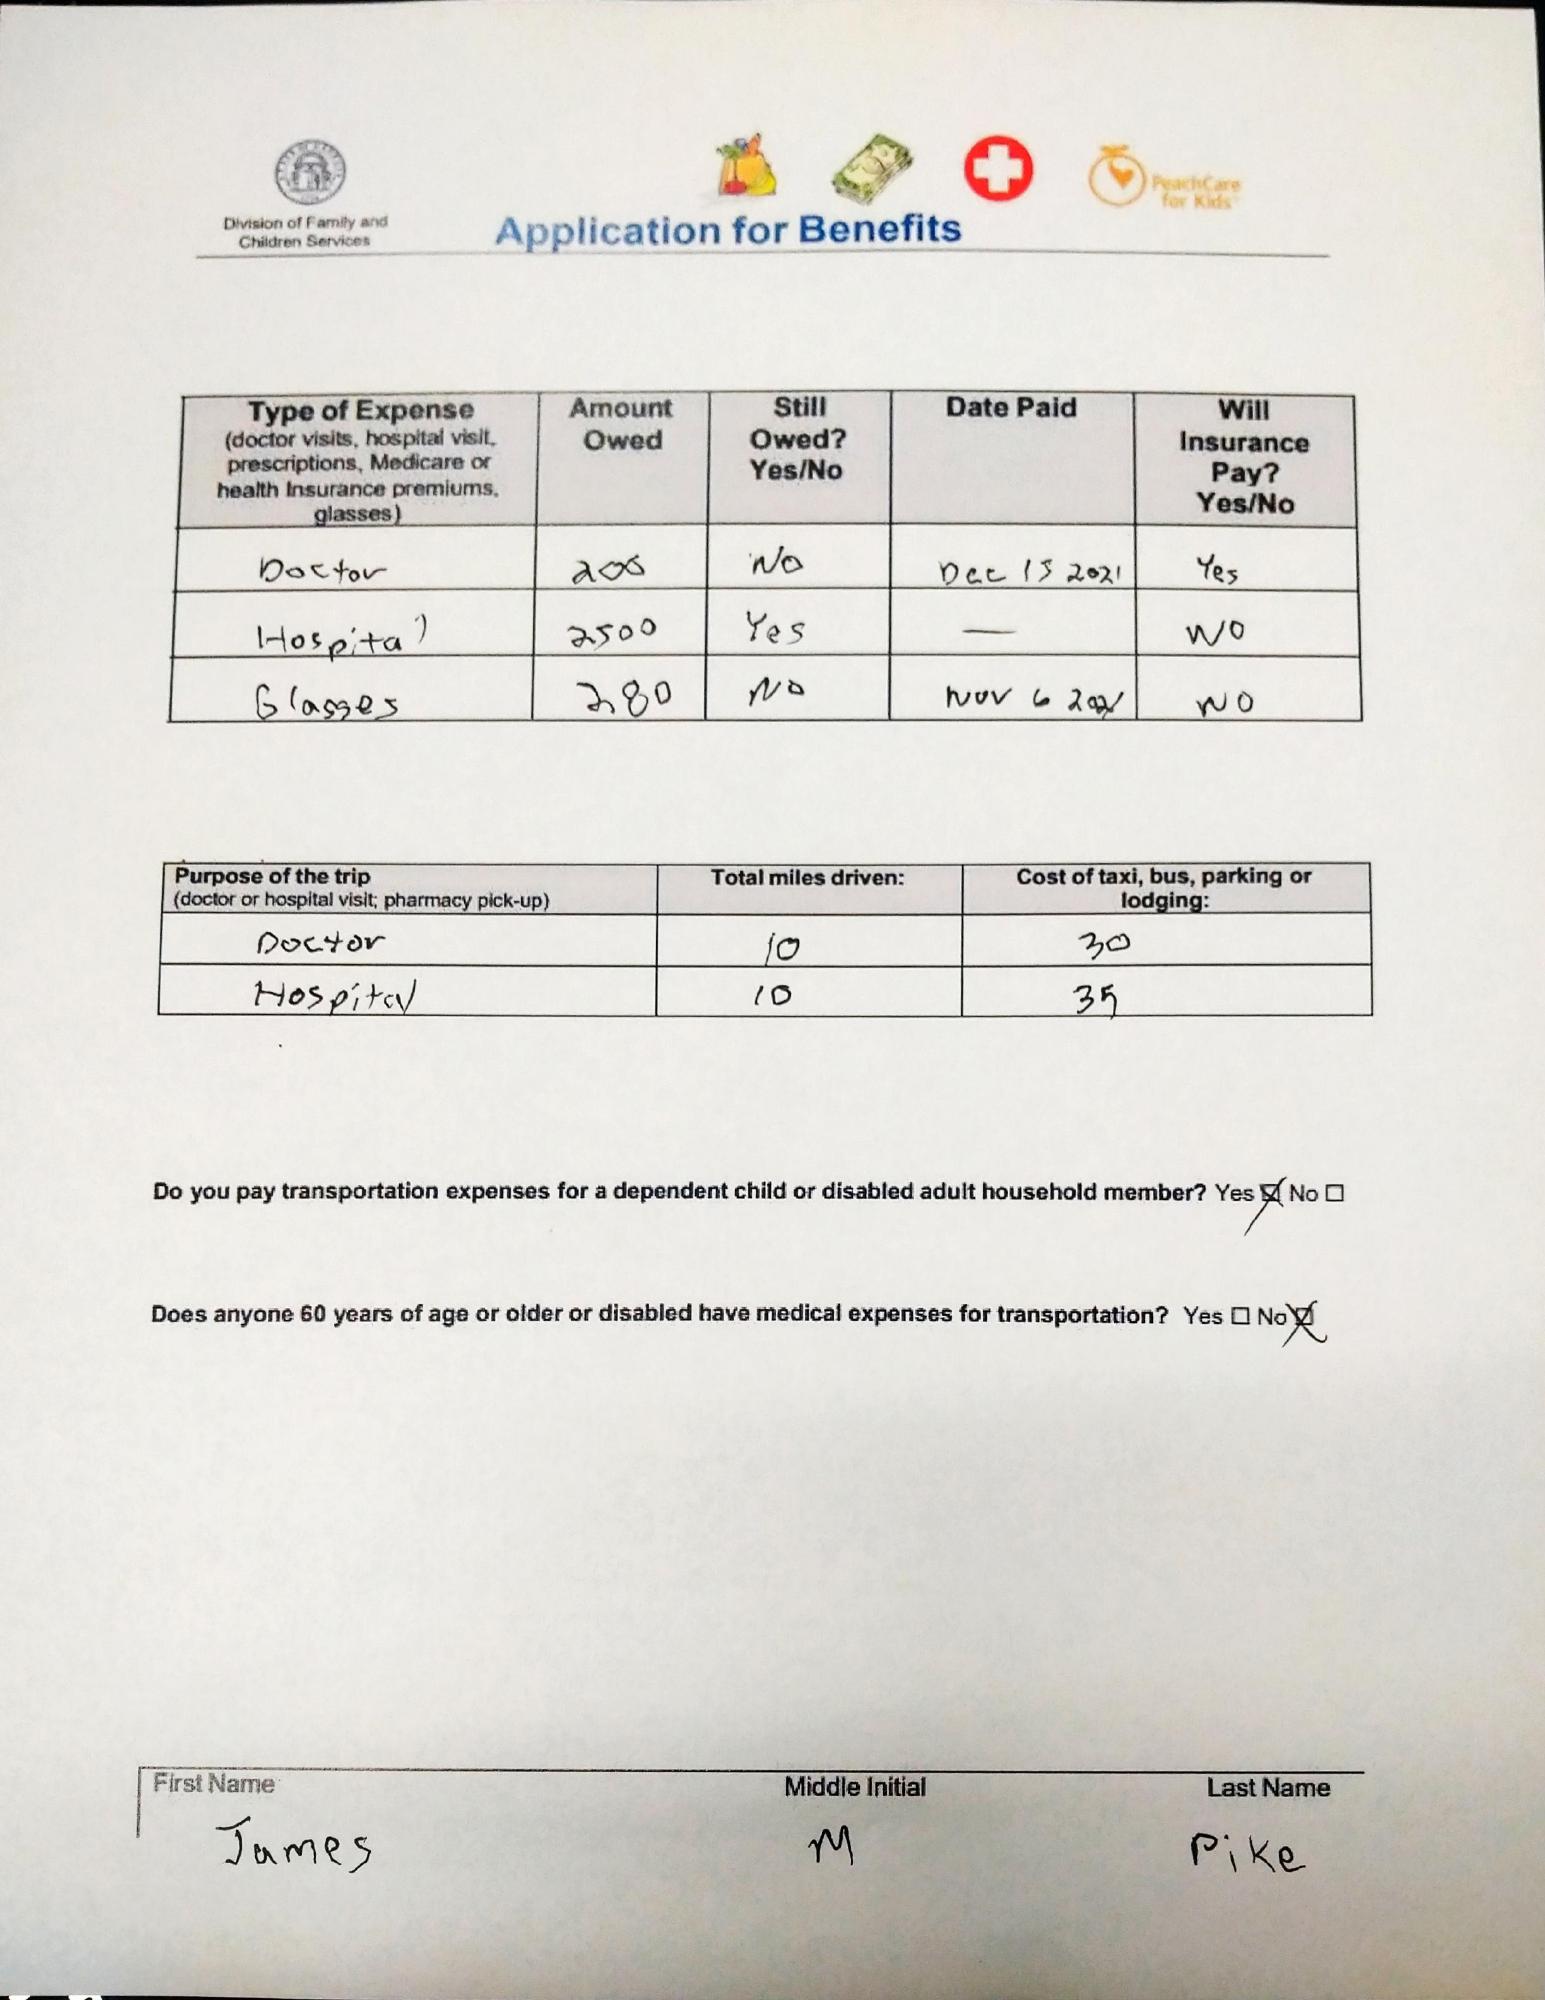 Division of Family and
Children Services
Application for Benefits
PeachCare
for Kids
Type of Expense
(doctor visits, hospital visit,
prescriptions, Medicare or
health Insurance premiums,
glasses)
Amount
Owed
Still
Owed?
Yes/No
Date Paid
Will
Insurance
Pay?
Yes/No
Doctor 200 No Dec 15 2021 Yes
Hospital 2500 Yes — NO
Glasses 280 No Nov 6 2021 NO
Purpose of the trip
(doctor or hospital visit; pharmacy pick-up)
Total miles driven:
Cost of taxi, bus, parking or
lodging:
Doctor 10 30
Hospital 10 35
Do you pay transportation expenses for a dependent child or disabled adult household member? Yes ☒ No ☐
Does anyone 60 years of age or older or disabled have medical expenses for transportation? Yes ☐ No ☒
First Name Middle Initial Last Name
James M Pike